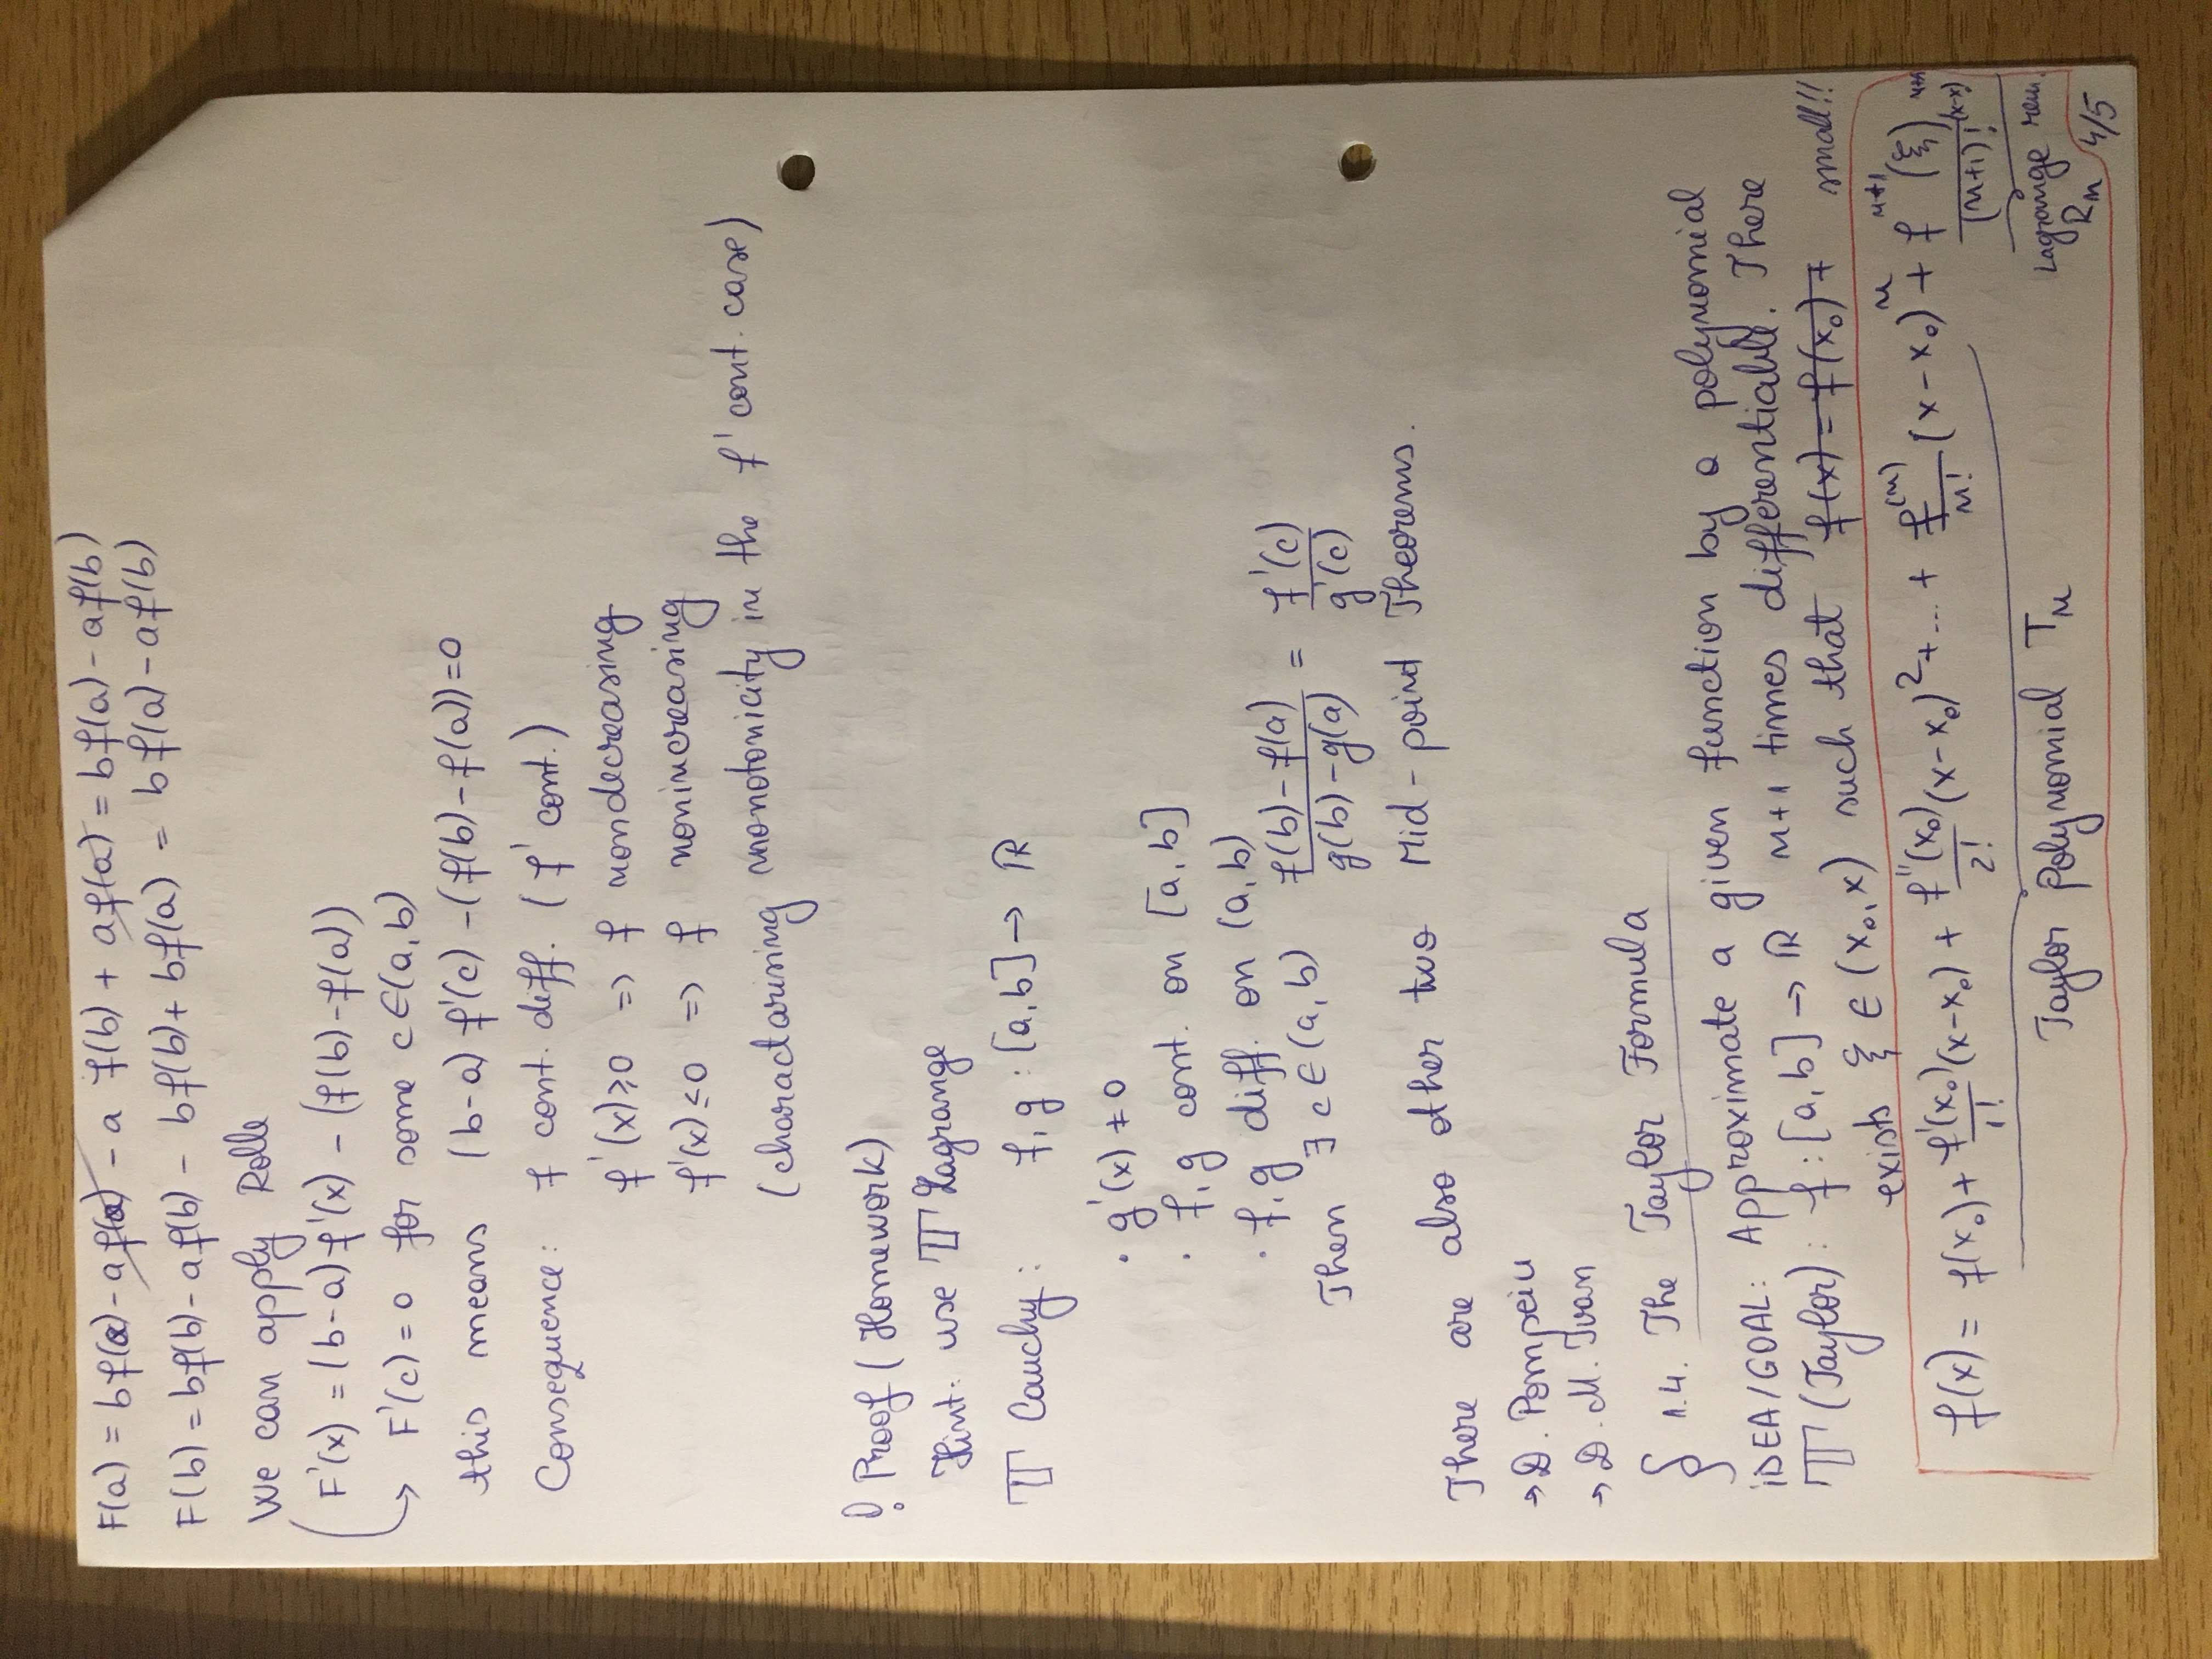 F(a) = bf(a) - af(a) - a f(b) + af(a) = bf(a) - af(b)
F(b) = bf(b) - af(b) - bf(b) + bf(a) = bf(a) - af(b)
We can apply Rolle
F'(x) = (b-a)f'(x) - (f(b)-f(a))
→ F'(c) = 0 for some c∈(a,b)
this means (b-a) f'(c) - (f(b)-f(a)) = 0
Consequence: f cont. diff. (f' cont.)
f'(x)≥0 => f nondecreasing
f'(x)≤0 => f nonincreasing
(charactarising monotonicity in the f' cont. case)
! Proof (Homework)
Hint: use T Lagrange
T Cauchy: f, g : [a,b] → ℝ
· g'(x) ≠ 0
· f, g cont. on [a,b]
· f, g diff. on (a,b)
Then ∃ c∈(a,b) (f(b)-f(a))/(g(b)-g(a)) = f'(c)/g'(c)
There are also other two Mid-point Theorems.
→ D. Pompeiu
→ D. M. Ivan
§ 1.4. The Taylor Formula
iDEA/GOAL: Approximate a given function by a polynomial
T (Taylor): f : [a,b] → ℝ n+1 times differentiable. There
exists ξ ∈ (x₀,x) such that f(x) = f(x₀) + small!!
f(x) = f(x₀) + f'(x₀)/1! (x-x₀) + f''(x₀)/2! (x-x₀)² + ... + f⁽ⁿ⁾/n! (x-x₀)ⁿ + fⁿ⁺¹(ξ)/(n+1)! (x-x)ⁿ⁺¹
Taylor Polynomial Tₙ Lagrange rem.
Rₙ 4/5